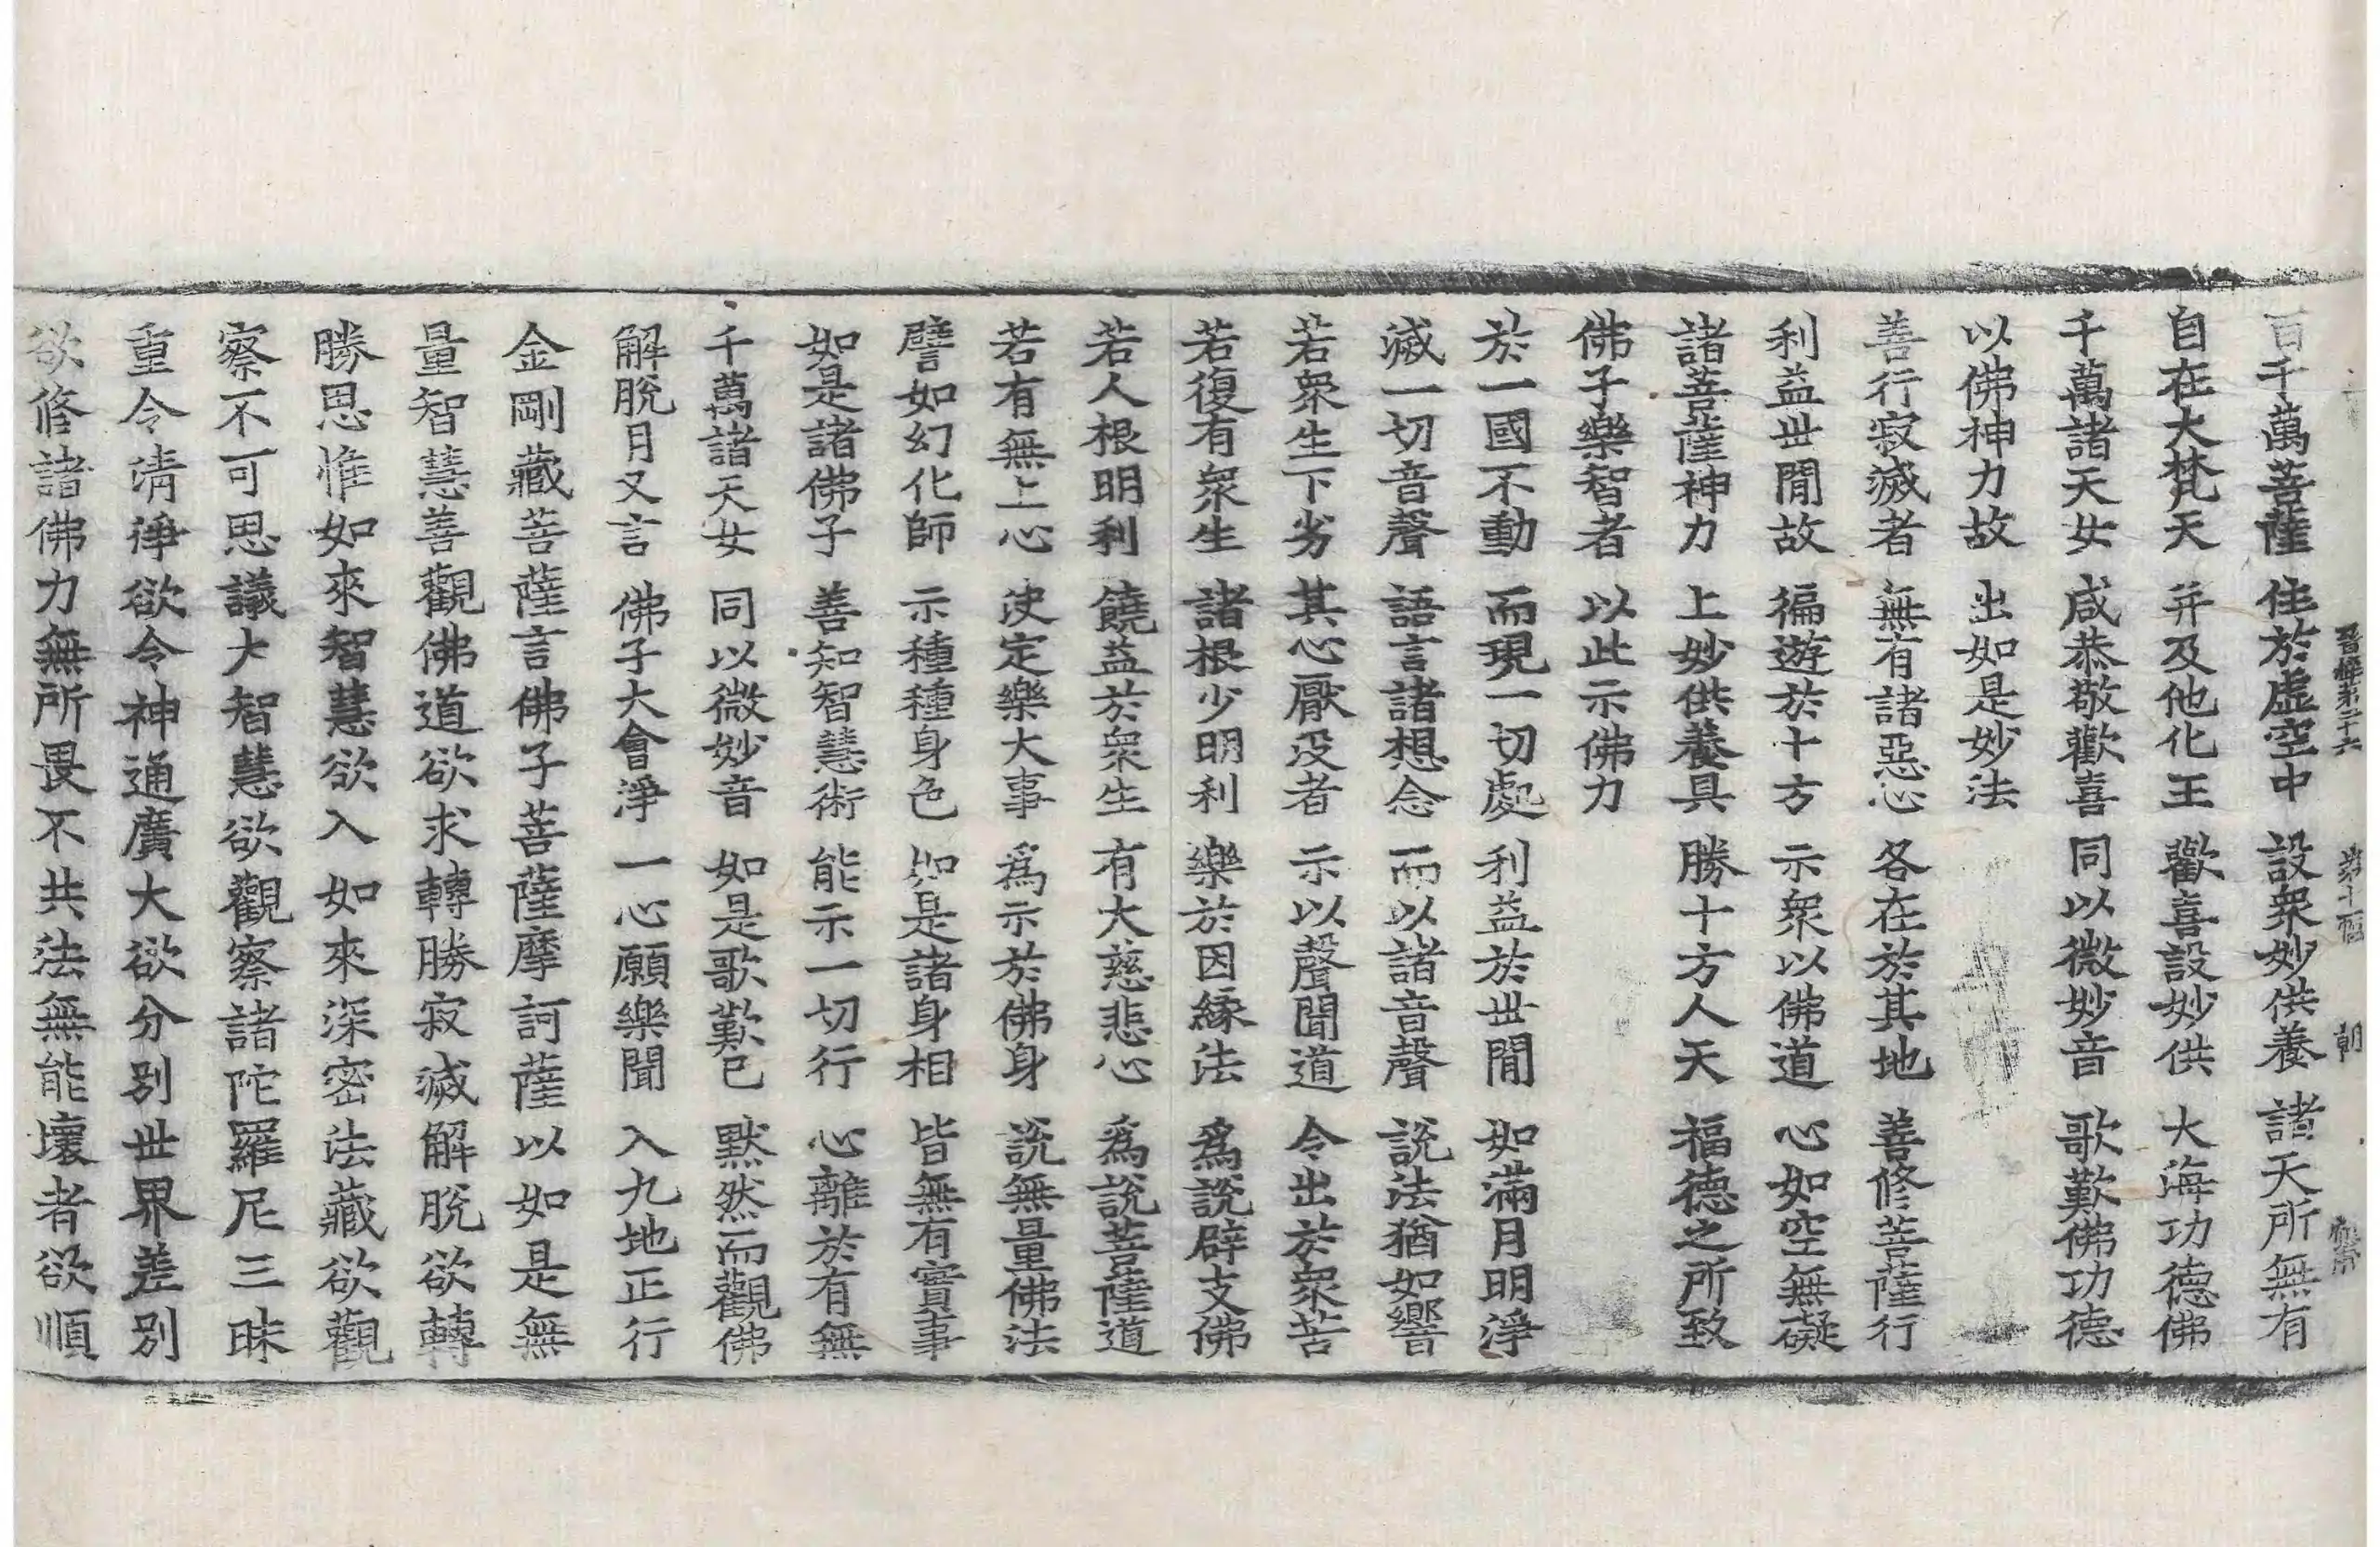 晉經第二十六 第十一幅 朝
百千萬菩薩 住於虛空中 設衆妙供養 諸天所無有
自在大梵天 并及他化王 歡喜設妙供 大海功德佛
千萬諸天女 咸恭敬歡喜 同以微妙音 歌歎佛功德
以佛神力故 出如是妙法
善行寂滅者 無有諸惡心 各在於其地 善修菩薩行
利益世閒故 徧遊於十方 示衆以佛道 心如空無礙
諸菩薩神力 上妙供養具 勝十方人天 福德之所致
佛子樂智者 以此示佛力
於一國不動 而現一切處 利益於世閒 如滿月明淨
滅一切音聲 語言諸想念 而以諸音聲 說法猶如響
若衆生下劣 其心厭沒者 示以聲聞道 令出於衆苦
若復有衆生 諸根少明利 樂於因緣法 爲說辟支佛
若人根明利 饒益於衆生 有大慈悲心 爲說菩薩道
若有無上心 決定樂大事 爲示於佛身 說無量佛法
譬如幻化師 示種種身色 如是諸身相 皆無有實事
如是諸佛子 善知智慧術 能示一切行 心離於有無
千萬諸天女 同以微妙音 如是歌歎已 默然而觀佛
解脫月又言 佛子大會淨 一心願樂聞 入九地正行
金剛藏菩薩言佛子菩薩摩訶薩以如是無
量智慧善觀佛道欲求轉勝寂滅解脫欲轉
勝思惟如來智慧欲入如來深密法藏欲觀
察不可思議大智慧欲觀察諸陀羅尼三昧
重令淸淨欲令神通廣大欲分別世界差別
欲修諸佛力無所畏不共法無能壞者欲順